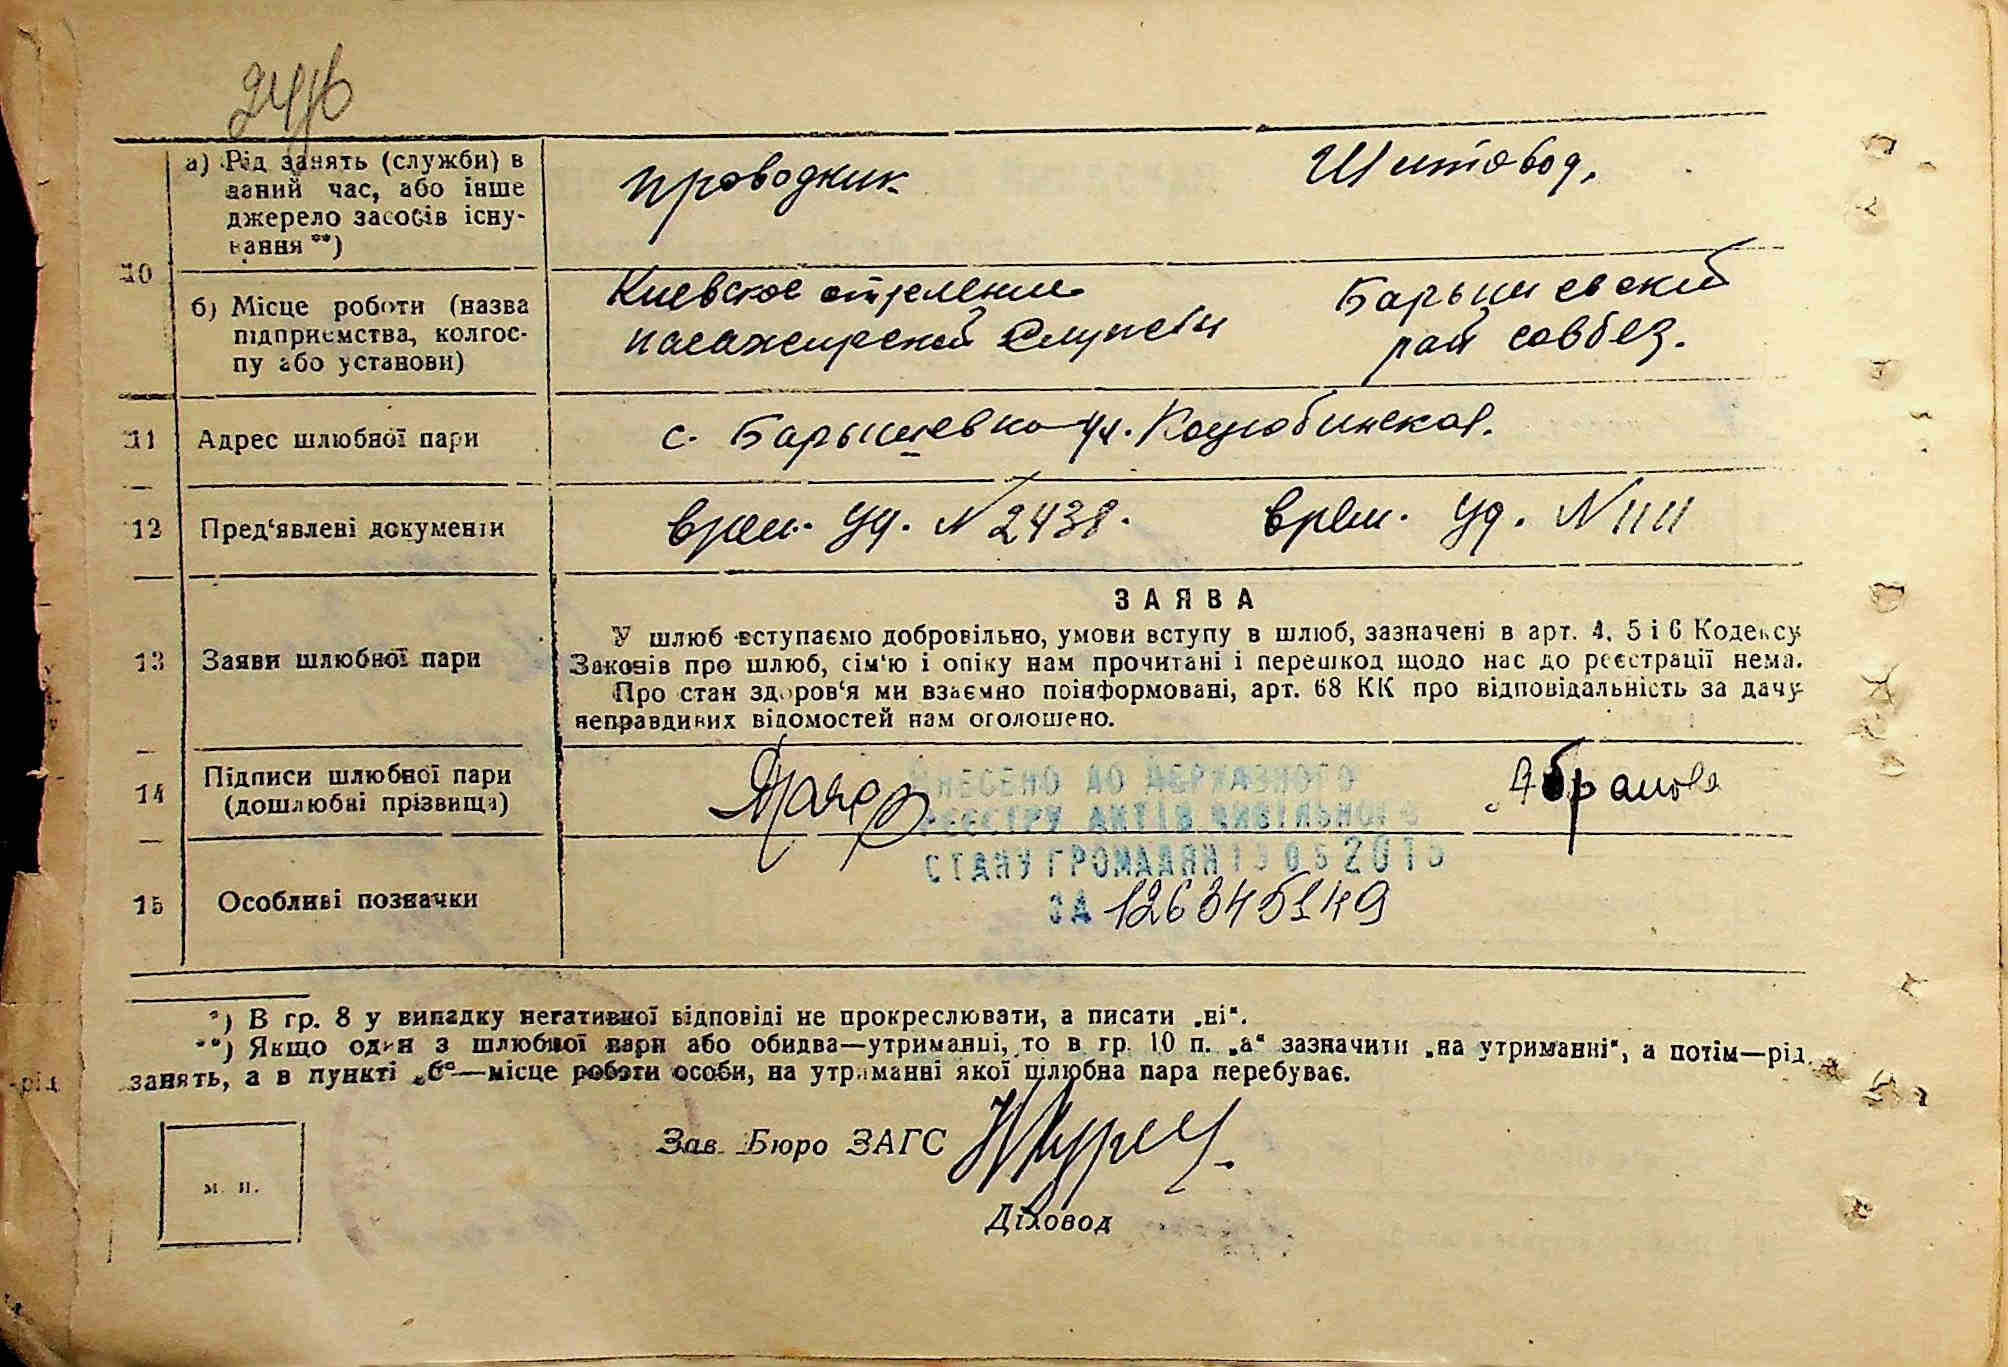 а) Рід занять (служби) в
даний час, або інше
джерело засобів існу-
вання **)
проводник
10
б) Місце роботи (назва
підприємства, колгос-
пу або установи)
Киевское отделение
пасажирской службы
Барышевский
рай совбез.
11 Адрес шлюбної пари
с. Барышевка ул. Коцюбинская.
12 Пред'явлені документи
врем. уд. № 2438. врем. уд. № 1111
13 Заяви шлюбної пари
ЗАЯВА
У шлюб вступаємо добровільно, умови вступу в шлюб, зазначені в арт. 4, 5 і 6 Кодексу
Законів про шлюб, сім'ю і опіку нам прочитані і перешкод щодо нас до реєстрації нема.
Про стан здоров'я ми взаємно поінформовані, арт. 68 КК про відповідальність за дачу
неправдивих відомостей нам оголошено.
14 Підписи шлюбної пари
(дошлюбні прізвища)
Абрамова
ВНЕСЕНО ДО ДЕРЖАВНОГО
РЕЄСТРУ АКТІВ ЦИВІЛЬНОГО
СТАНУ ГРОМАДЯН
ЗА
15 Особливі позначки
*) В гр. 8 у випадку негативної відповіді не прокреслювати, а писати „ні“.
**) Якщо один з шлюбної пари або обидва—утриманці, то в гр. 10 п. „а“ зазначити „на утриманні“, а потім—рід
занять, а в пункті „б“—місце роботи особи, на утриманні якої шлюбна пара перебуває.
Зав. Бюро ЗАГС
м. п.
Діловод